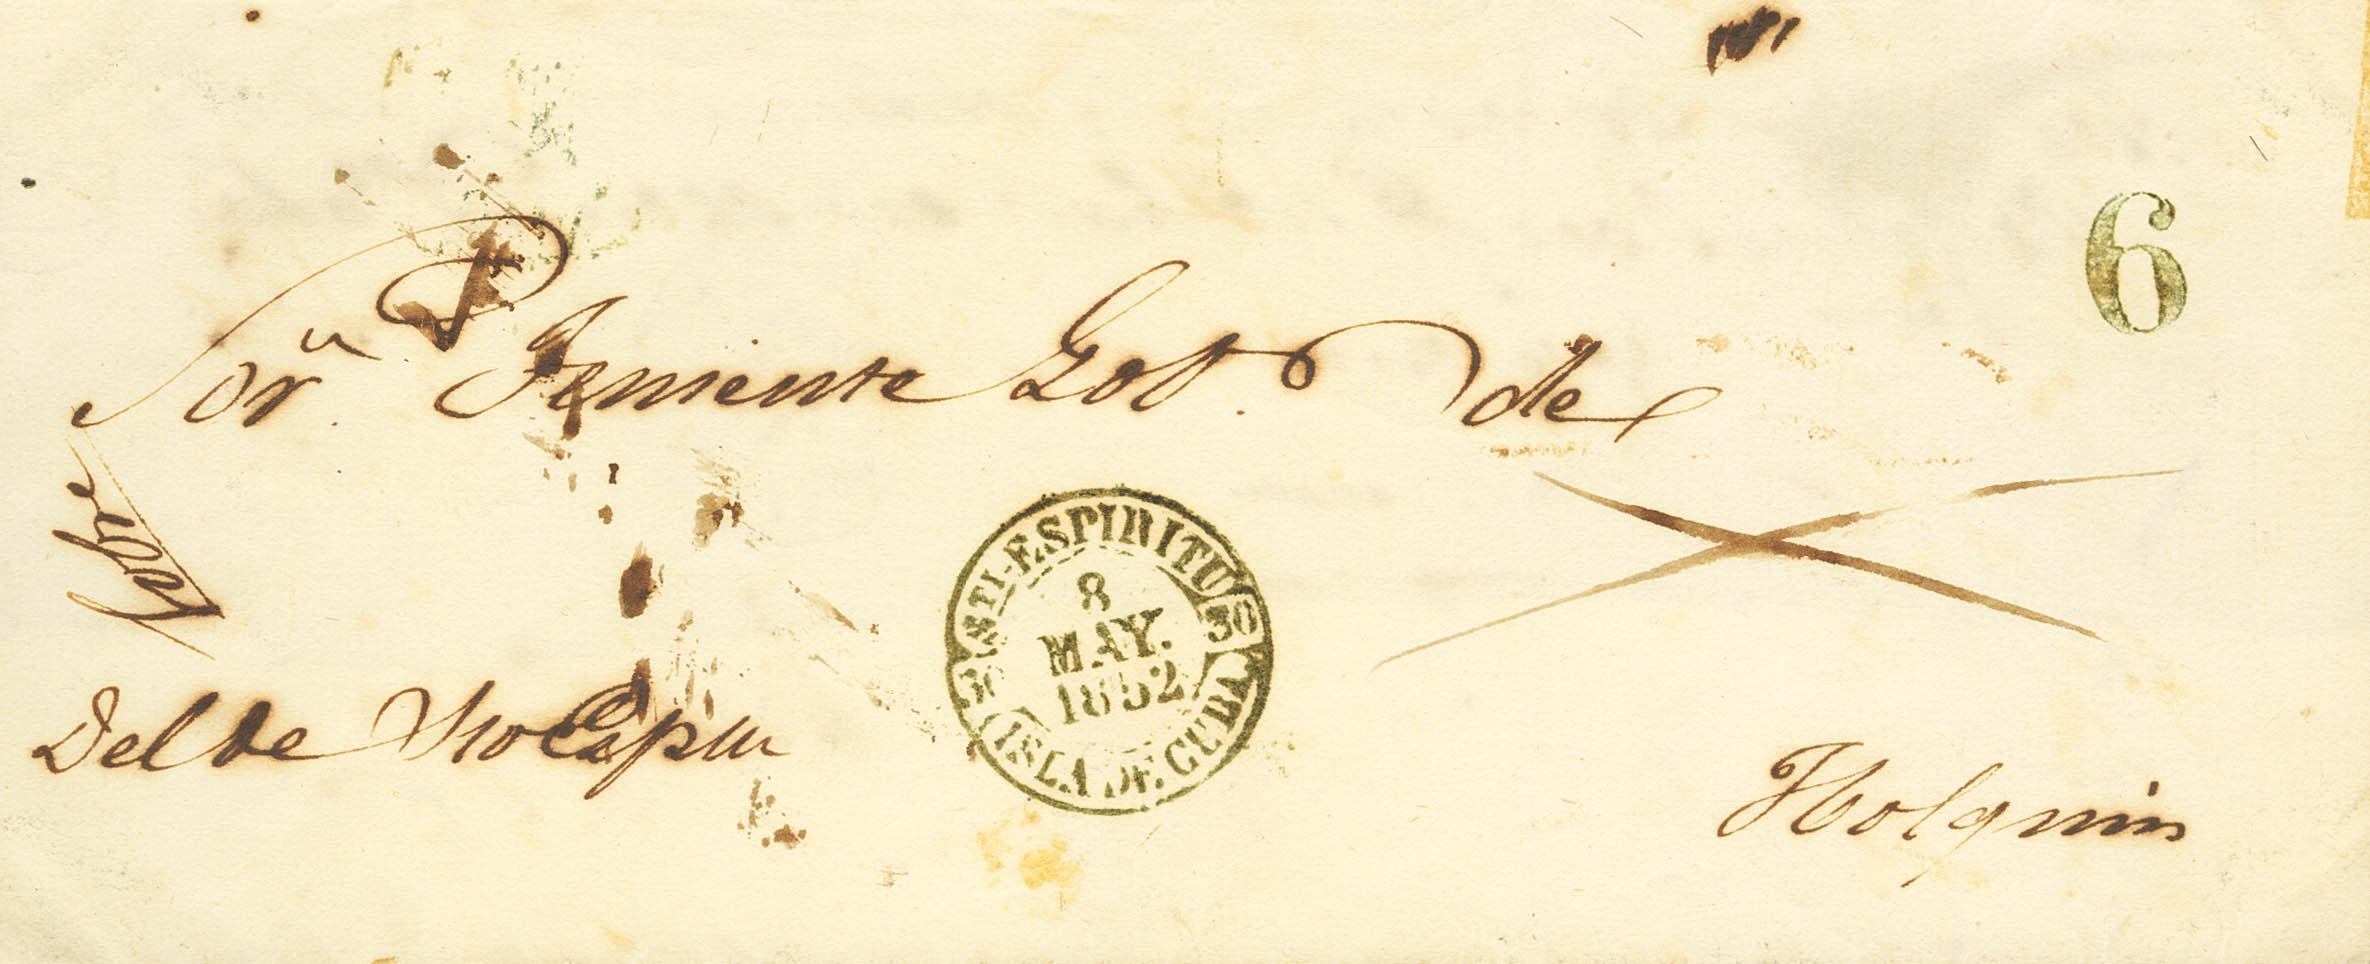 6
Sor. Teniente Gob.or de
STI-ESPIRITU
30
8
MAY.
1852
30
ISLA DE CUBA
Del de
Holguin